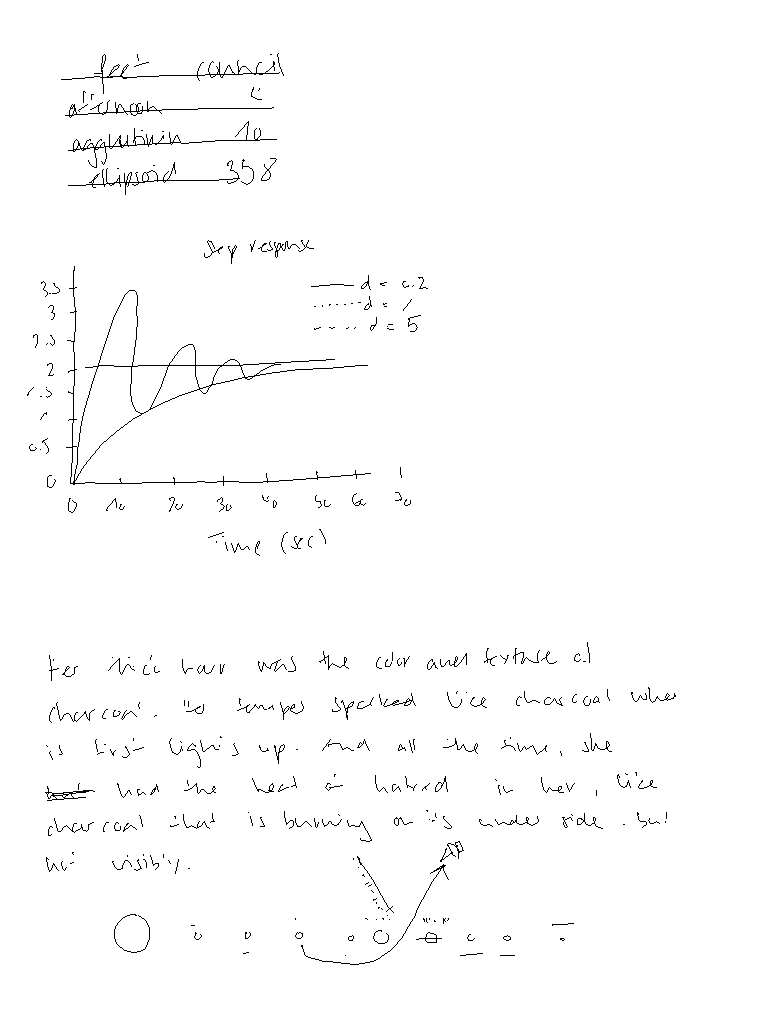 feet council
afternoon
agglutinin 10
ellipsoid 358
step response
d = 0.2
d = 1
d = 5
3.5
3
2.5
2
1.5
1
0.5
0
0 10 20 30 40 50 60 70
Time (sec)
Her thick hair was the color and texture of
charcoal. Its temper sparked like charcoal when
is first lights up. And all the time, she
had the heat of hatred in her, like
charcoal that is burning on its under side. but
not visibly.